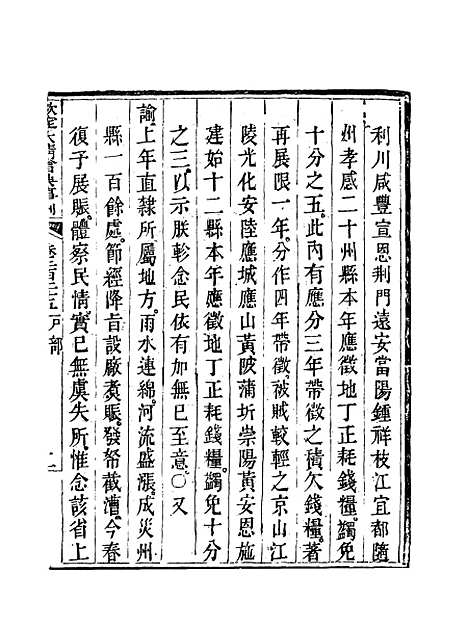 利川咸豐宣恩荆門遠安當陽鍾祥枝江宜都隨
州孝感二十州縣本年應徵地丁正耗錢糧蠲免
十分之五此內有應分三年帶徵之積欠錢糧著
再展限一年分作四年帶徵被賊較輕之京山江
陵光化安陸應城應山黃陂蒲圻崇陽黃安恩施
建始十二縣本年應徵地丁正耗錢糧蠲免十分
之三以示朕軫念民依有加無已至意〇又
諭上年直隸所屬地方雨水連綿河流盛漲成災州
縣一百餘處節經降旨設廠煑賑發帑截漕今春
復予展賑體察民情實已無虞失所惟念該省上
欽定大清會典事例 卷二百二十五戶部